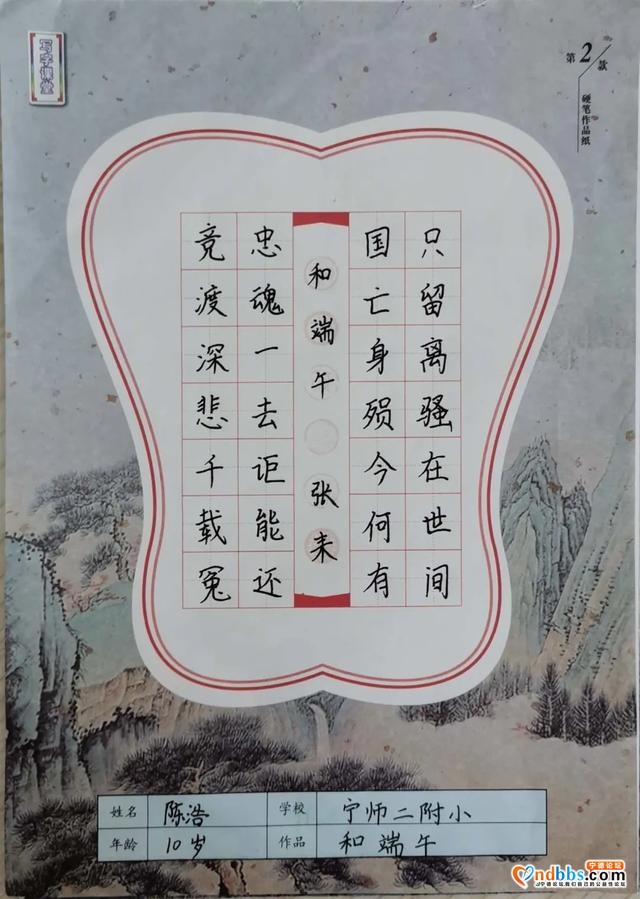 写字课堂
第2款
硬笔作品纸
竞渡深悲千载冤
忠魂一去讵能还
和端午 张耒
国亡身殒今何有
只留离骚在世间
姓名 陈浩 学校 宁师二附小
年龄 10岁 作品 和端午
宁德论坛
ndbbs.com
宁德论坛我们自己的公益性论坛